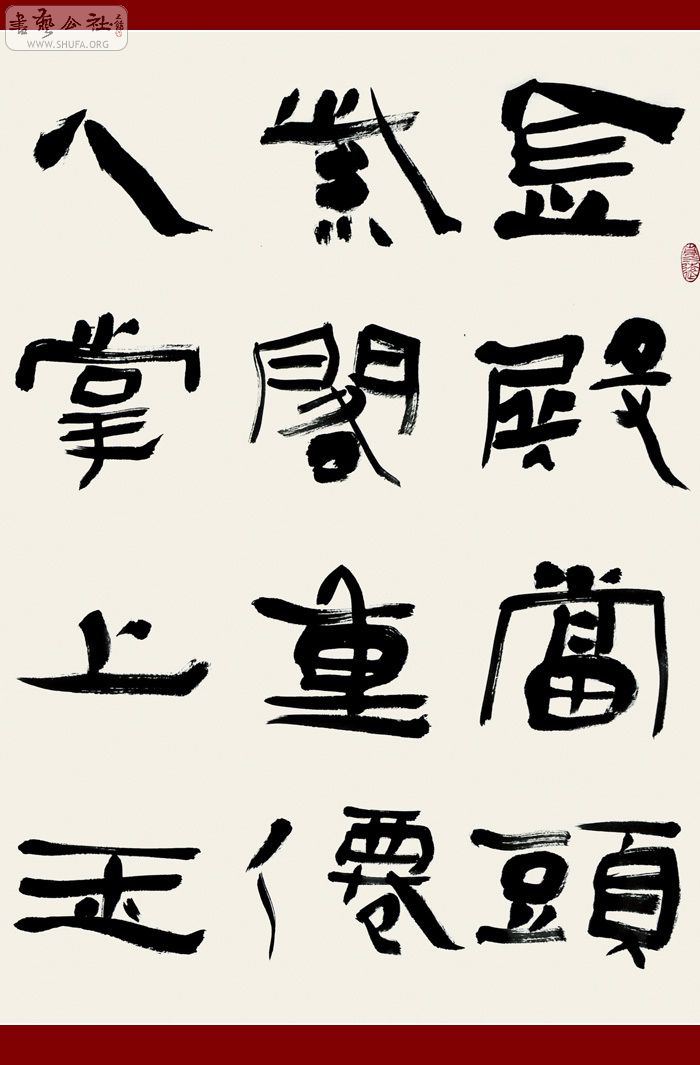 金殿當頭
紫閣重僊
人掌上玉
書藝公社
WWW.SHUFA.ORG